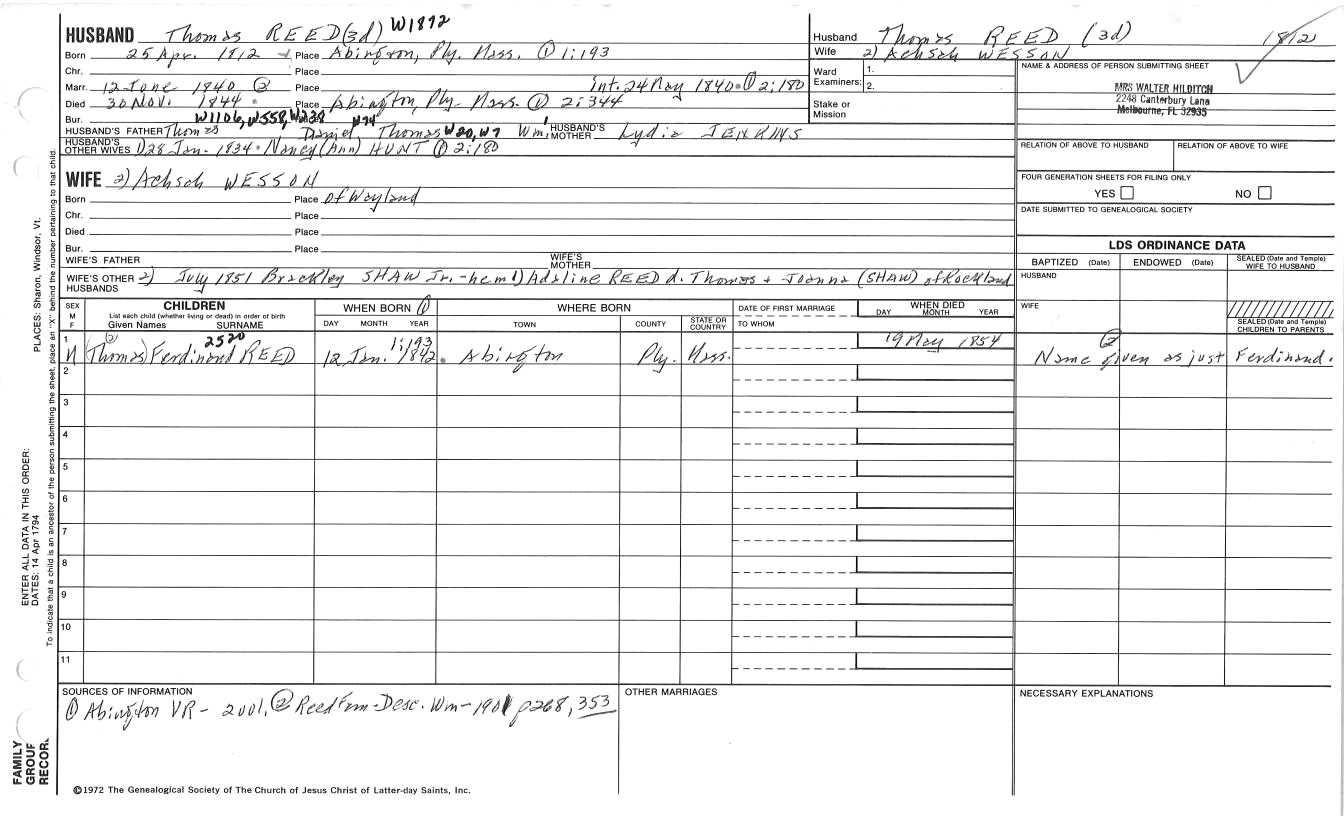 HUSBAND Thomas REED (3d) W1872
Born 25 Apr. 1812 Place Abington, Ply. Mass. ① 1:193
Chr. Place
Marr. 12 June 1840 ② Place Int. 24 May 1840 ① 2:180
Died 30 Nov. 1844 Place Abington, Ply. Mass. ① 2:344
Bur. Place
W1106, W558, W238 W74
HUSBAND'S FATHER Thomas Daniel, Thomas W20, W7 Wm. HUSBAND'S MOTHER Lydia JENKINS
HUSBAND'S OTHER WIVES 1) 28 Jan. 1834 Nancy (Ann) HUNT ① 2:180
WIFE 2) Achsah WESSON
Born Place of Wayland
Chr. Place
Died Place
Bur. Place
WIFE'S FATHER WIFE'S MOTHER
WIFE'S OTHER HUSBANDS 2) July 1851 Brackley SHAW Jr. - he m 1) Adaline REED d. Thomas + Joanna (SHAW) of Rockland
Husband Thomas REED (3d) 1812
Wife 2) Achsah WESSON
Ward Examiners: 1.
2.
Stake or Mission
NAME & ADDRESS OF PERSON SUBMITTING SHEET
MRS WALTER HILDITCH
2248 Canterbury Lane
Melbourne, FL 32935
RELATION OF ABOVE TO HUSBAND RELATION OF ABOVE TO WIFE
FOUR GENERATION SHEETS FOR FILING ONLY
YES NO
DATE SUBMITTED TO GENEALOGICAL SOCIETY
LDS ORDINANCE DATA
BAPTIZED (Date) ENDOWED (Date) SEALED (Date and Temple) WIFE TO HUSBAND
HUSBAND
WIFE
SEALED (Date and Temple) CHILDREN TO PARENTS
SEX M F
CHILDREN
List each child (whether living or dead) in order of birth
Given Names SURNAME
WHEN BORN ①
DAY MONTH YEAR
WHERE BORN
TOWN COUNTY STATE OR COUNTRY
DATE OF FIRST MARRIAGE
TO WHOM
WHEN DIED
DAY MONTH YEAR
1 M (2) (Thomas) Ferdinand REED 2520 12 Jan. 1842 1:193 Abington Ply. Mass. 19 May 1854 ② Name given as just Ferdinand.
2
3
4
5
6
7
8
9
10
11
SOURCES OF INFORMATION
① Abington VR - 2001, ② Reed Fam - Desc. Wm - 1901 p268, 353
OTHER MARRIAGES
NECESSARY EXPLANATIONS
©1972 The Genealogical Society of The Church of Jesus Christ of Latter-day Saints, Inc.
FAMILY GROUP RECORD
ENTER ALL DATA IN THIS ORDER:
DATES: 14 Apr 1794
PLACES: Sharon, Windsor, Vt.
To indicate that a child is an ancestor of the person submitting the sheet, place an "X" behind the number pertaining to that child.